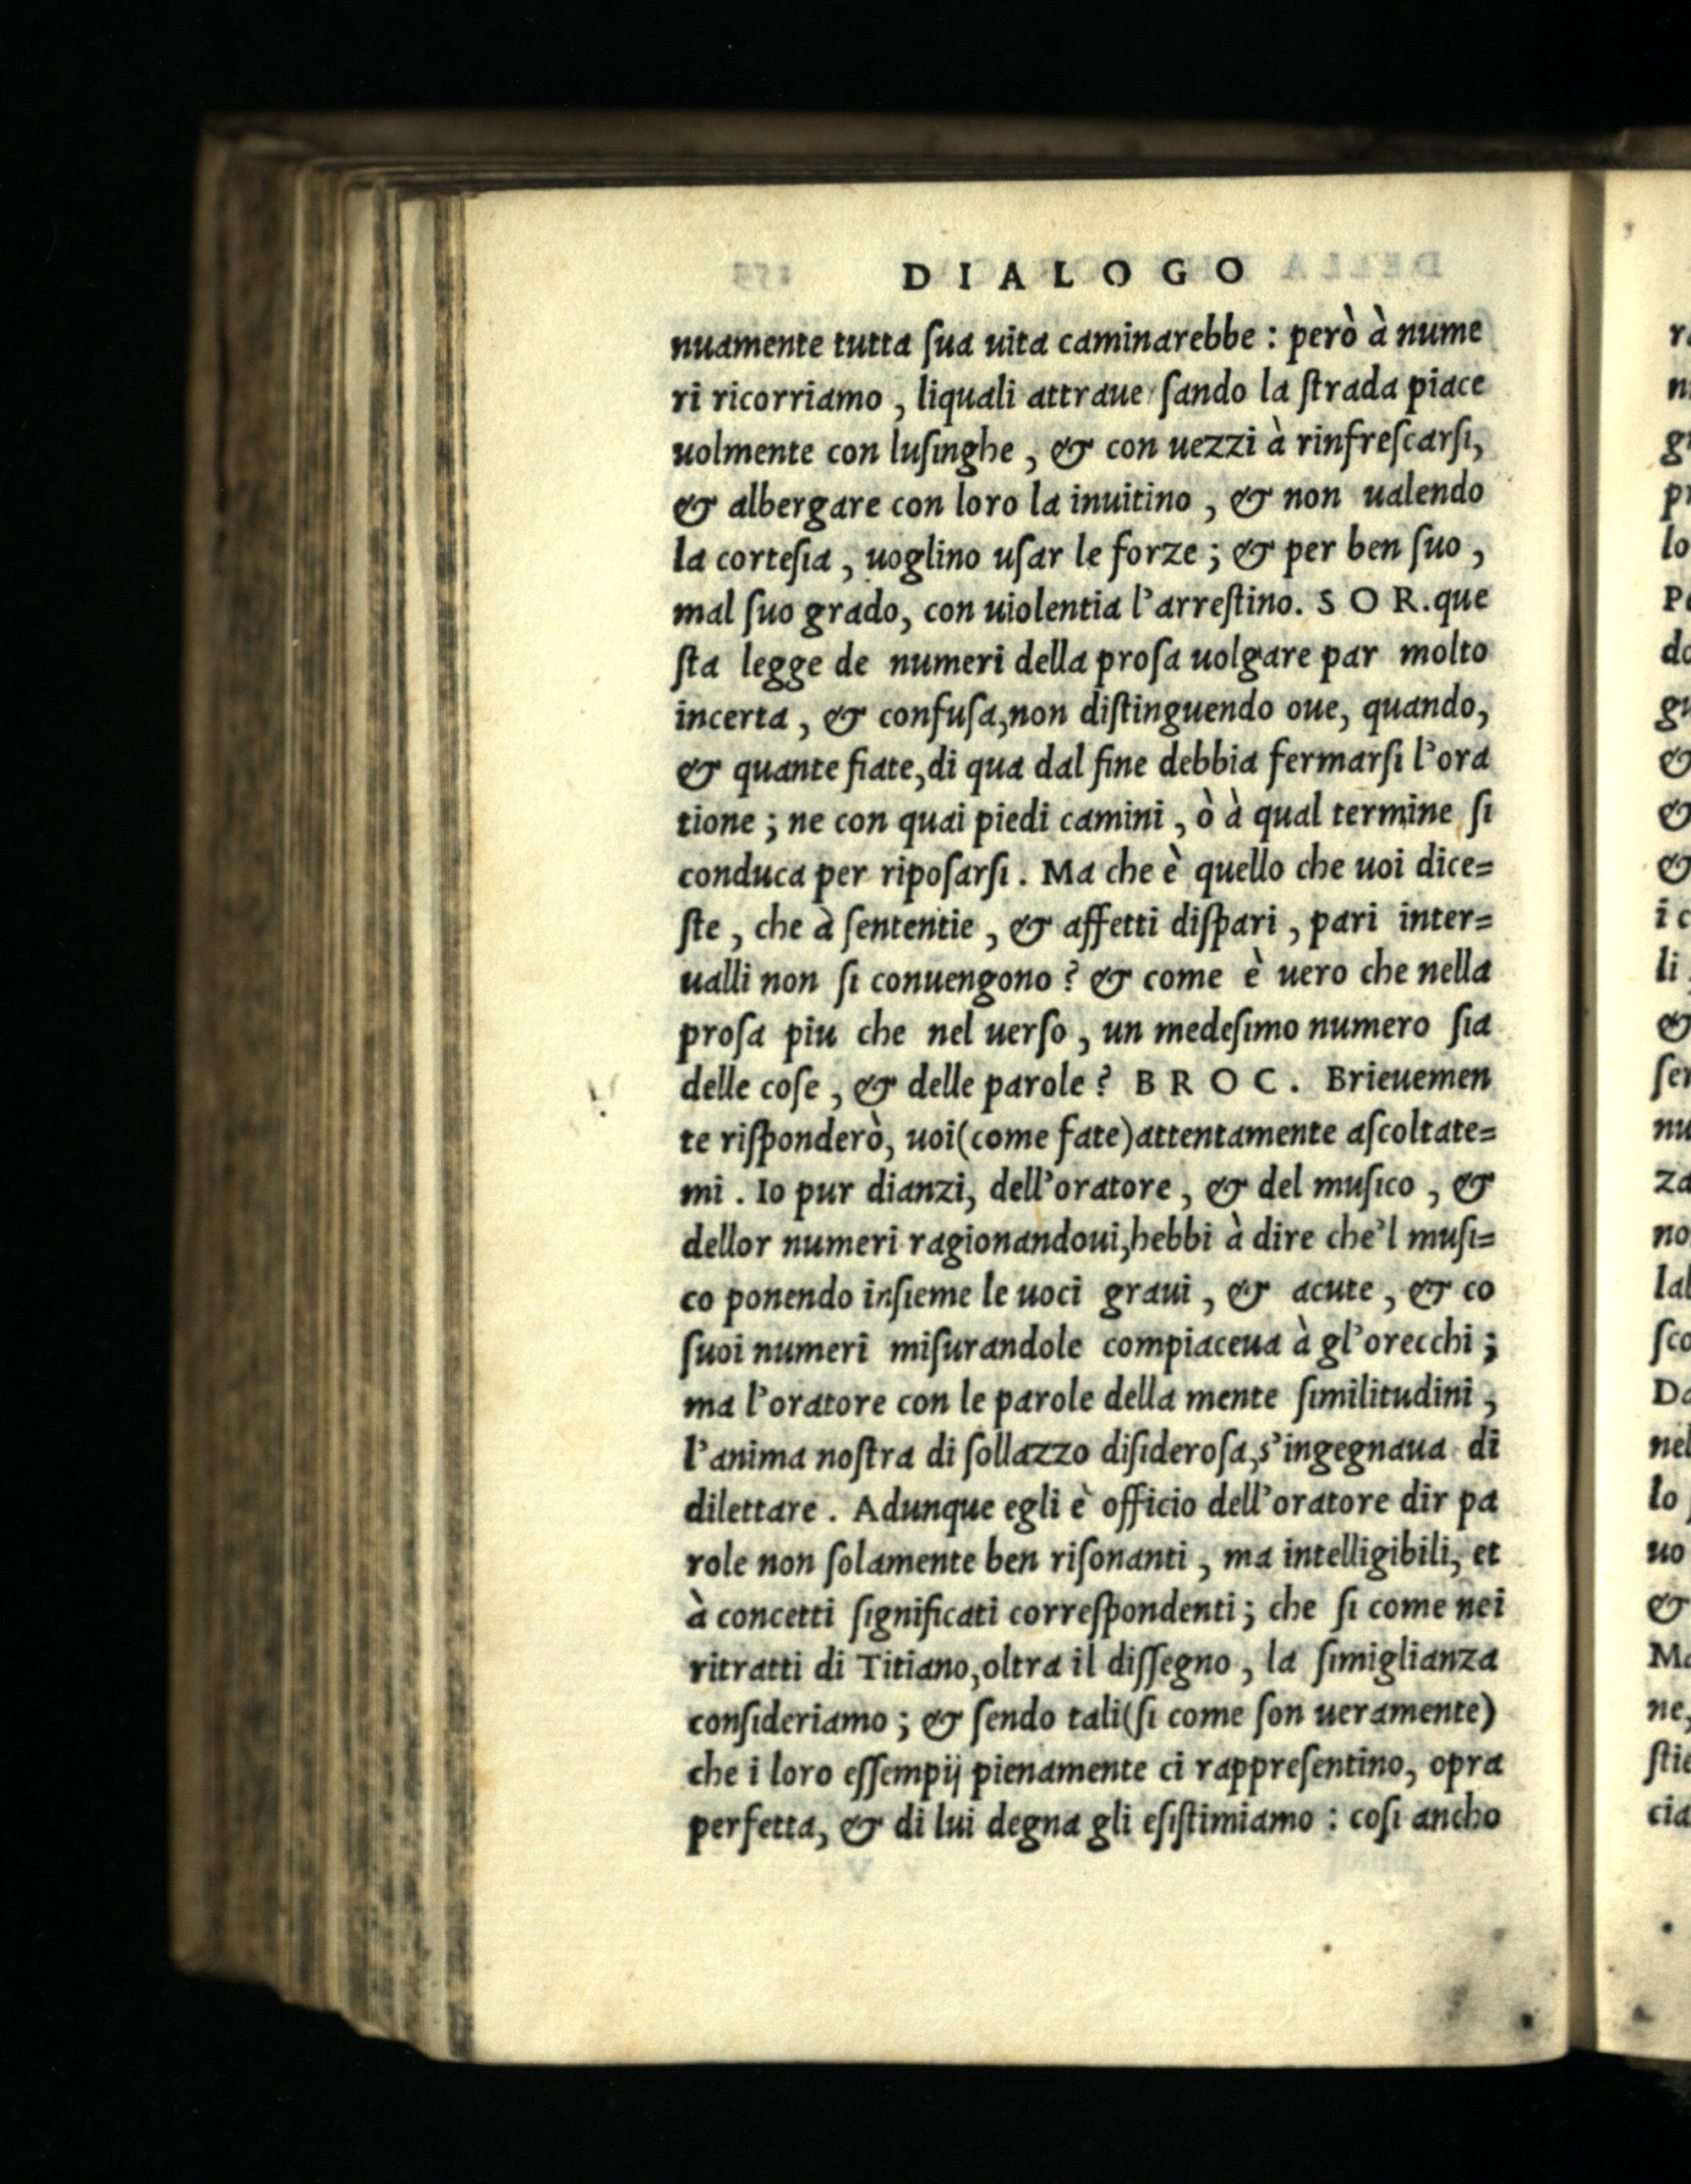 DIALOGO
nuamente tutta ſua uita caminarebbe : però à nume
ri ricorriamo , liquali attraue ſando la ſtrada piace
uolmente con luſinghe , & con uezzi à rinfreſcarſi,
& albergare con loro la inuitino , & non ualendo
la corteſia , uoglino uſar le forze ; & per ben ſuo ,
mal ſuo grado, con uiolentia l'arreſtino. SOR.que
ſta legge de numeri della proſa uolgare par molto
incerta , & confuſa,non diſtinguendo oue, quando,
& quante fiate,di qua dal fine debbia fermarſi l'ora
tione ; ne con quai piedi camini , ò à qual termine ſi
conduca per ripoſarſi . Ma che è quello che uoi dice=
ſte , che à ſententie , & affetti diſpari , pari inter=
ualli non ſi conuengono ? & come è uero che nella
proſa piu che nel uerſo , un medeſimo numero ſia
delle coſe , & delle parole ? BROC. Brieuemen
te riſponderò, uoi(come fate)attentamente aſcoltate=
mi . Io pur dianzi, dell'oratore , & del muſico , &
dellor numeri ragionandoui,hebbi à dire che'l muſi=
co ponendo inſieme le uoci graui , & acute , & co
ſuoi numeri miſurandole compiaceua à gl'orecchi ;
ma l'oratore con le parole della mente ſimilitudini ,
l'anima noſtra di ſollazzo diſideroſa,s'ingegnaua di
dilettare . Adunque egli è officio dell'oratore dir pa
role non ſolamente ben riſonanti , ma intelligibili, et
à concetti ſignificati correſpondenti ; che ſi come nei
ritratti di Titiano,oltra il diſſegno , la ſimiglianza
conſideriamo ; & ſendo tali(ſi come ſon ueramente)
che i loro eſſempij pienamente ci rappreſentino, opra
perfetta, & di lui degna gli eſiſtimiamo : coſi ancho